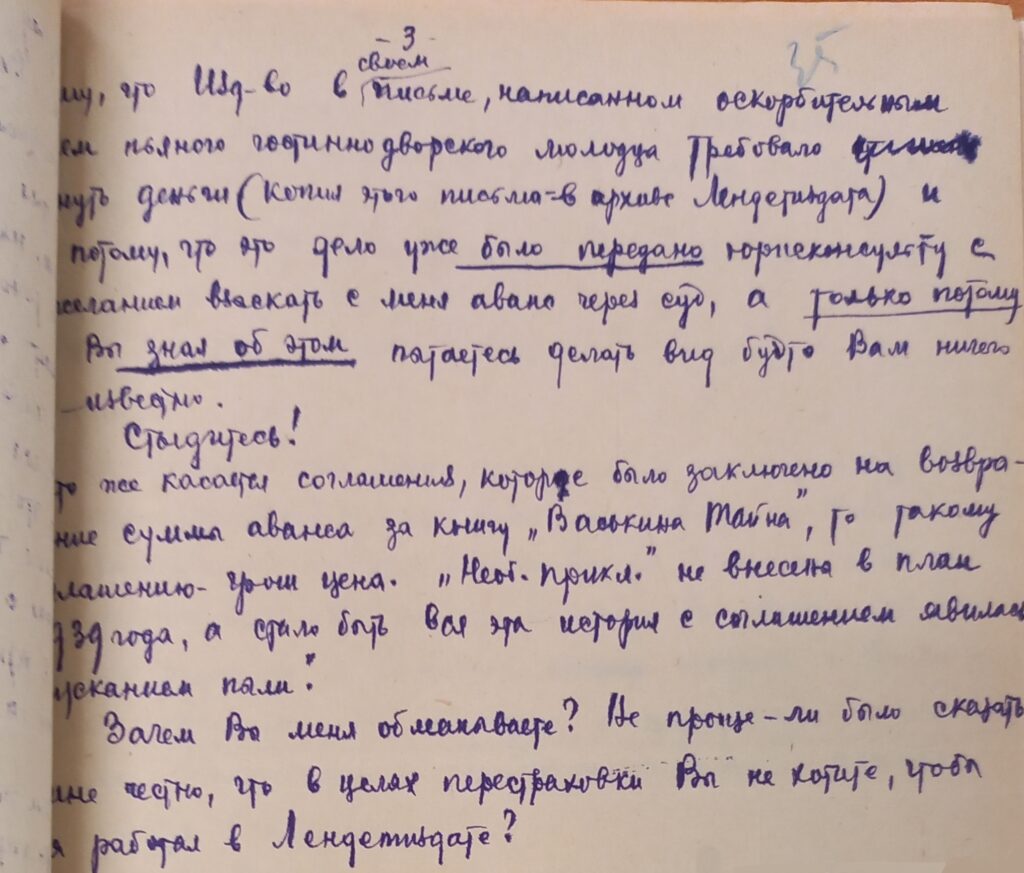 - 3
35
своем
му, что Изд-во в письме, написанном оскорбительным
ем пьяного гостиннодворского молодца требовало
нуть деньги (Копия этого письма - в архиве Лендетиздата) и
потому, что это дело уже было передано юрисконсульту с
желанием взыскать с меня аванс через суд, а только потому
Вы зная об этом пытаетесь делать вид будто Вам ничего
известно.
Стыдитесь!
то же касается соглашения, которое было заключено на возвра-
ние суммы аванса за книгу „Васькина тайна", то такому
лашению - грош цена. „Необ. прикл." не внесена в план
939 года, а стало быть вся эта история с соглашением явилась
усканием пыли.
Зачем Вы меня обманываете? Не проще-ли было сказать
мне честно, что в целях перестраховки Вы не хотите, чтобы
я работал в Лендетиздате?